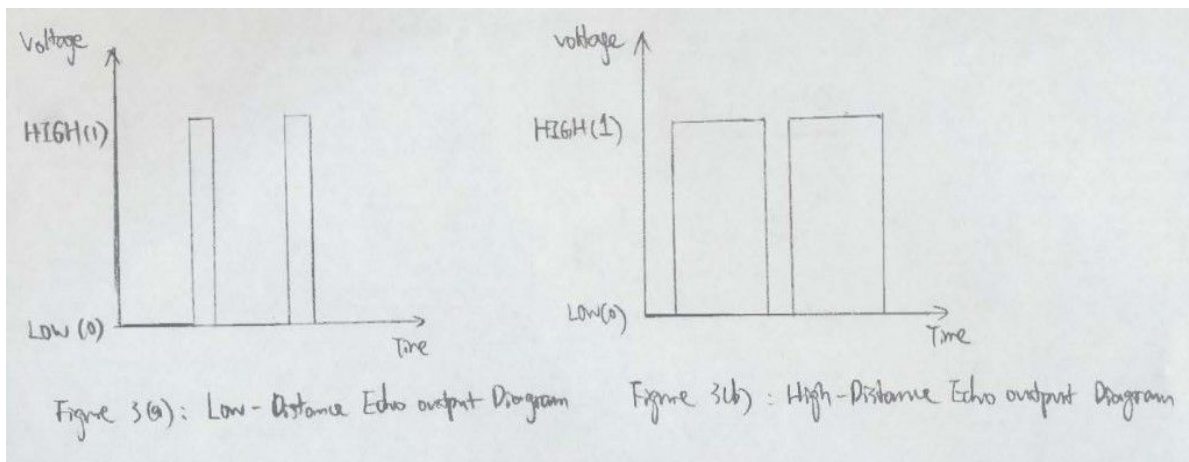 Voltage
HIGH(1)
LOW (0)
Time
Figure 3(a): Low-Distance Echo output Diagram
voltage
HIGH(1)
LOW(0)
Time
Figure 3(b) : High-Distance Echo output Diagram